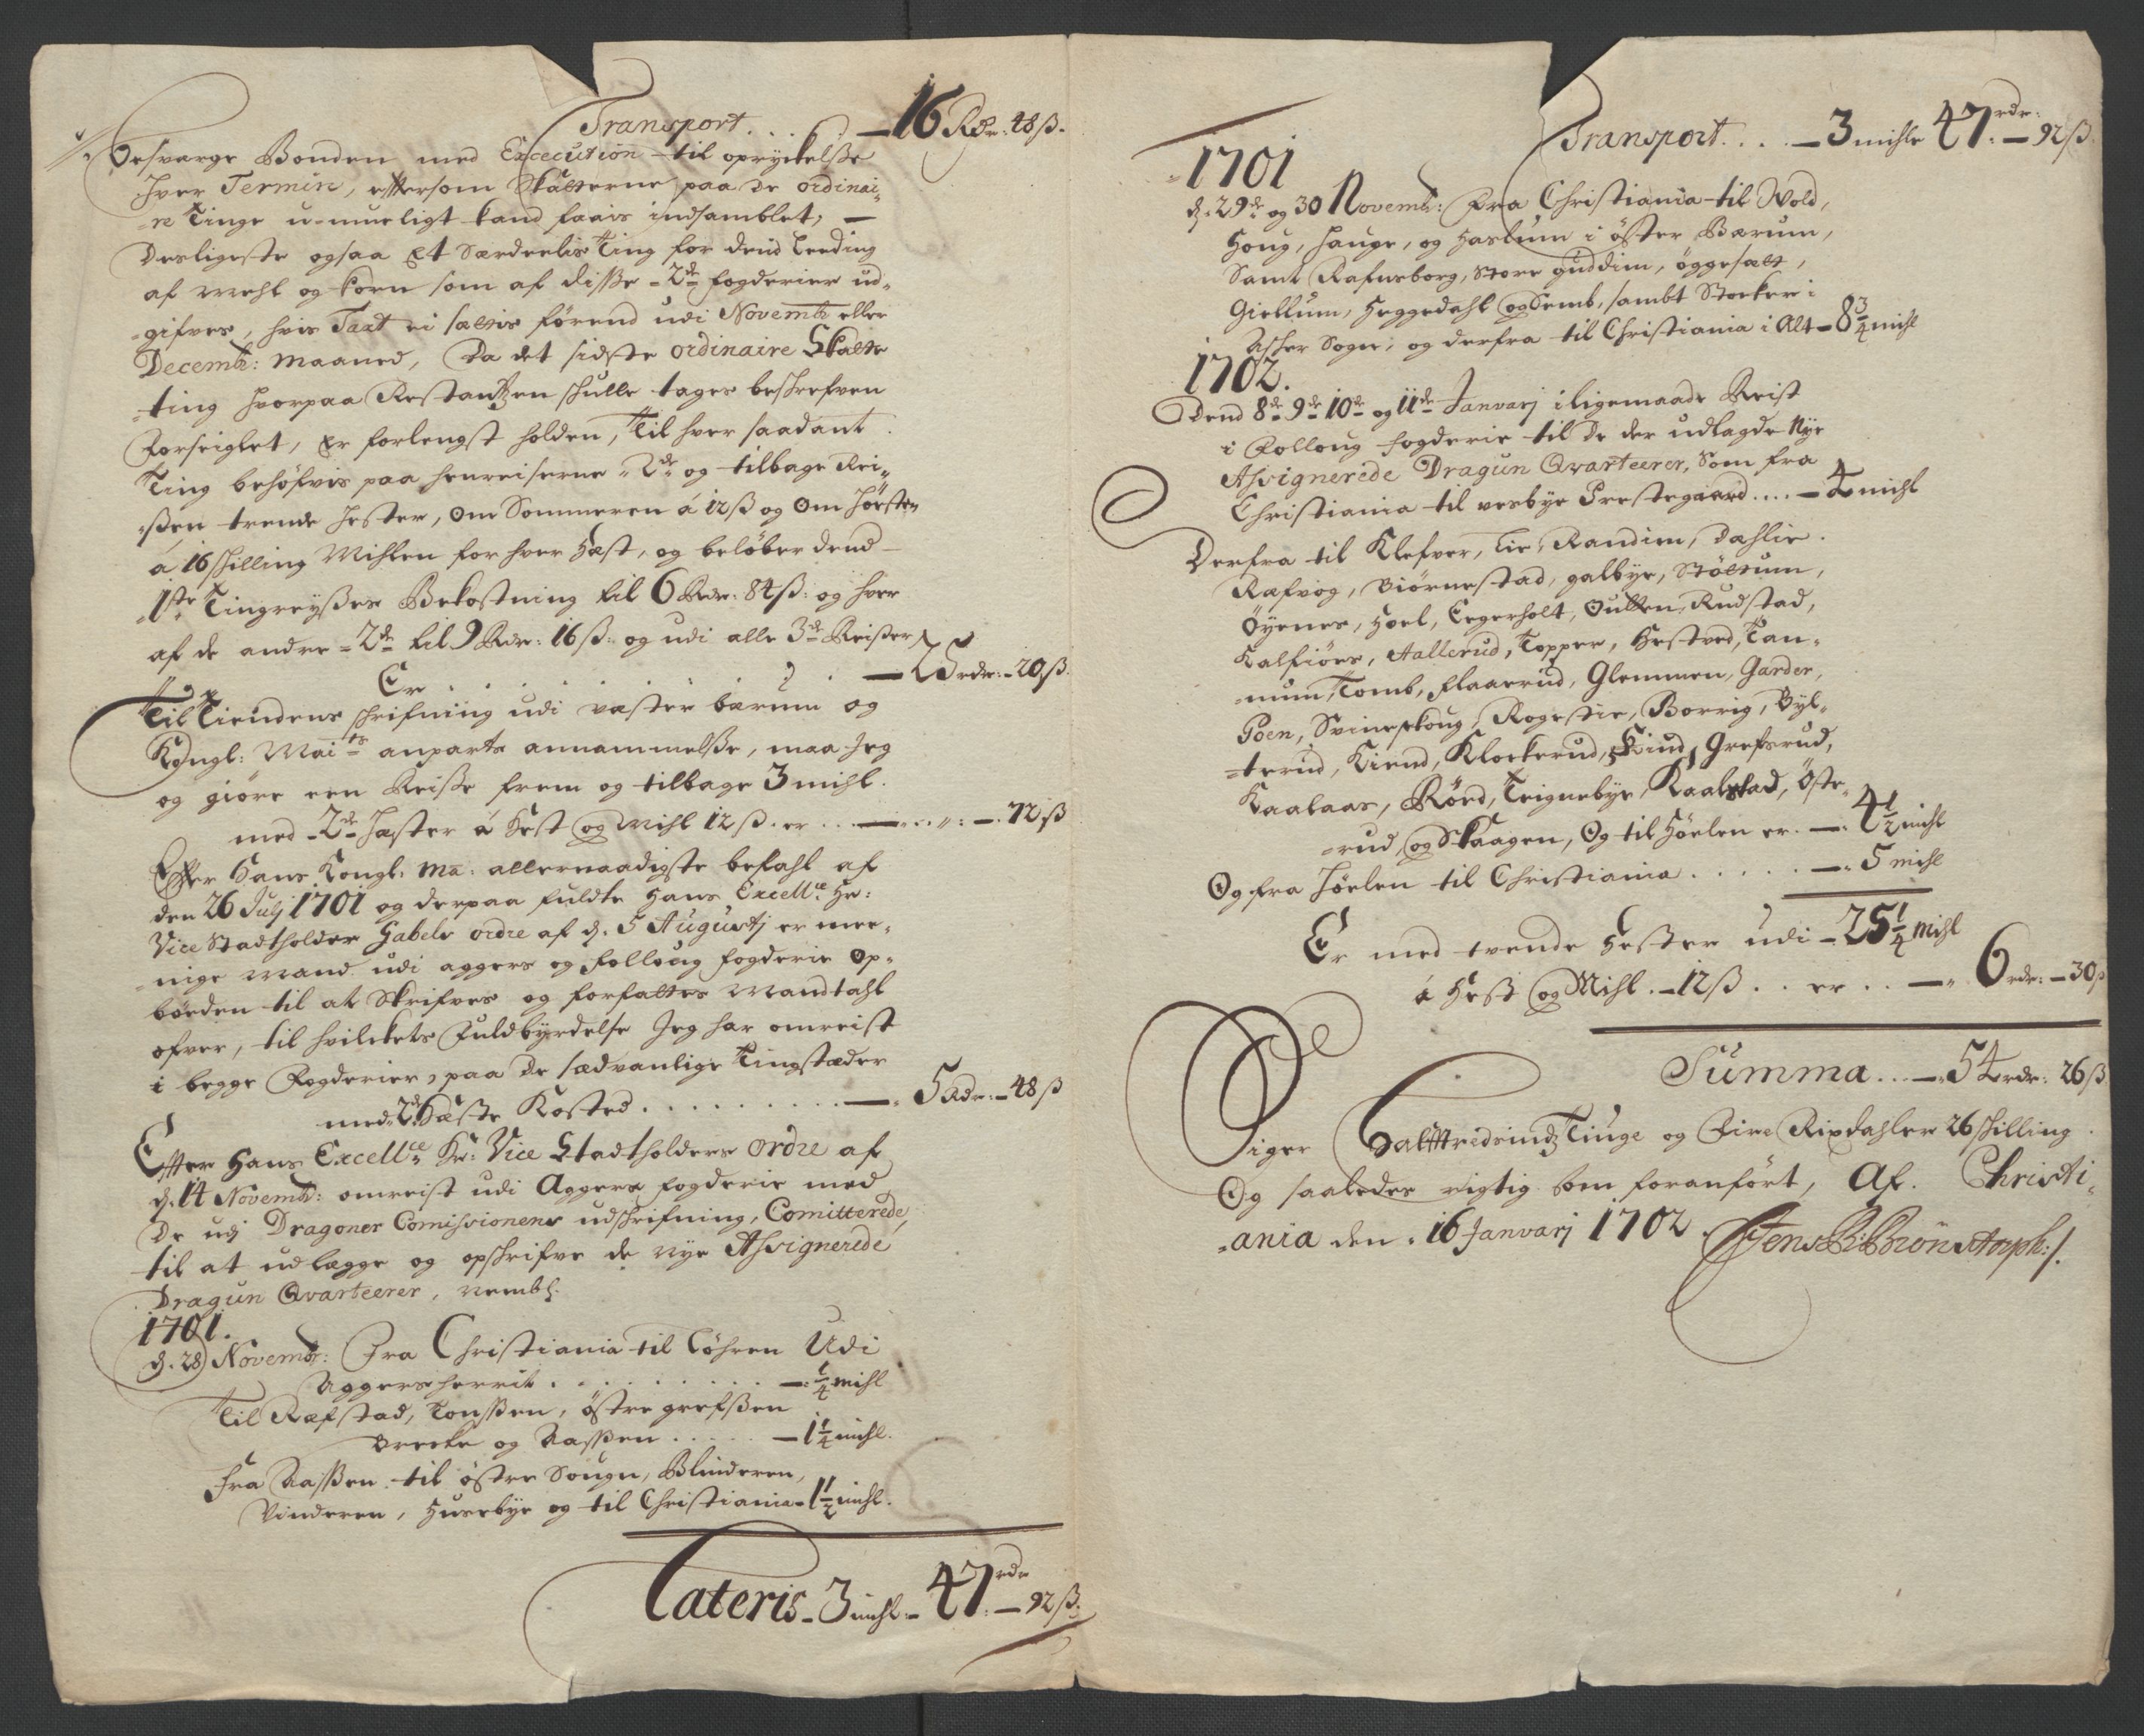 Transport . . . — 16 Rdr: 48 ß.
besvarge Bonden med Execution til opryckelsse
hver Termin, eftersom Skatterne paa de ordinai-
re Tinge u-mueligt kand faais indsamblet, —
Desligeste ogsaa et Særdeelis Ting for dend Leeding
af meehl og korn som af disse 2de fogderier ud-
gifves, hvis Taxt ei sættis förend udi Novembr eller
Decembr: Maaned, da det sidste ordinaire Skatte
ting hvorpaa Restantzen skulle tages beskrefven
Forseiglet, er forlengst holden, Til hver saadant
Ting behöfvis paa henreiserne 2de og tilbage Rei-
ssen trende hester, om Sommeren á 12 ß og om Hösten
á 16 skilling Mihlen for hver Hæst, og belöber dend
1ste Tingreysses Bekostning til 6 Rdr: 84 ß: og hver
af de andre 2de til 9 Rdr: 16 ß: og udi alle 3de Reisser
Er . . . . . — 25 rdr: 20 ß.
Til Tiendens skrifning udi vester bærum og
Kongl: Maits anparts annammelsse, maa Jeg
og giöre een Reisse frem og tilbage 3 mihl.
med 2de Hæster á Hest og Mihl 12 ß. er . . — . . — 72 ß
Efter Hans Kongl: Ma: allernaadigste befahl af
den 26 Julj 1701 og derpaa fuldte Hans Excellce Hr:
Vice Stadtholder Gabels ordre af d. 5 Augustj er mee-
nige Mand udi aggers og folloug fogderie op-
börden til at Skrifves og forfattes Mandtahl
ofver, til hvilckets Fuldbyrdelse Jeg har omreist
i begge Fogderier, paa de sædvanlige Tingstæder
med 2de Hæste Kosted . . . . . . . — 5 Rdr: 48 ß
Efter Hans Excellce Hr: Vice Stadtholders ordre af
d. 14 Novembr: omreist udi Aggers fogderie med
De udj Dragoner Comissionens udskrifning, Comitterede,
til at udlægge og opskrifve de nye Assignerede
Dragun Qvarteerer, nembl.
1701.
d. 28 Novembr: Fra Christiania til Löhren Udi
Aggersherrit . . . . . . . . — 1/4 mihl
Til Refstad, Tonssen, östre grefssen
Brecke og Kassen . . . . . — 1 1/4 mihl.
Fra Kassen til östre Sougn, Blinderen,
Vinderen, Husebye og til Christiania 1 1/2 mihl.
Lateris 3 mihl 47 rdr — 92 ß.
Transport . . . . — 3 mihle 47 rdr: — 92 ß.
1701
d. 29de og 30 Novembr: Fra Christiania til Wold,
Houg, Hauge, og Haslum i öster Bærum,
Samt Rafnsborg, Store guddim, öggesætt,
Giellum, Heggedahl og Semb, sambt Stocker i
Asker Sogn, og derfra til Christiania i Alt 8 3/4 mihl
1702.
Dend 8de 9de 10de og 11de Januarj iligemaade Reist
i Folloug fogderie til De der udlagde Nye
Assignerede Dragun Qvarteerer, Som fra
Christiania til vesbye Prestegaard . . . . — 4 mihl
Derfra til Klefver, Lie, Randim, Dahlie.
Refvog, Biörnestad, galbye, Stöttum,
Öyenes, Hoel, Eegerholt, Oulten, Rudstad,
Kalfiöes, Aallerud, Topper, Hestved, Tan-
num, Tomb, flaaerud, Glemmen, Garder,
Poen, Svineskoug, Rogestie, Borrig, Byl-
terud, Kiend, Klockerud, Kind, Grefsrud,
Kaalaas, Röed, Teignebye, Kaalstad, Öste-
rud, og Skaagen, Og til Höelen er. — 4 1/2 mihl
Og fra Höelen til Christiania . . . . . — 5 mihl
Er med tvende Hester udi — 25 1/4 mihl
á Hest og Mihl. 12 ß . . er . . — 6 rdr: 30 ß
Summa . . — 54 rdr: 26 ß
Siger Halftredsindz Tiuge og Fire Rixdahler 26 skilling.
Og saaledes rigtig som foranfört, Af. Christi-
ania den 16 Januarj 1702